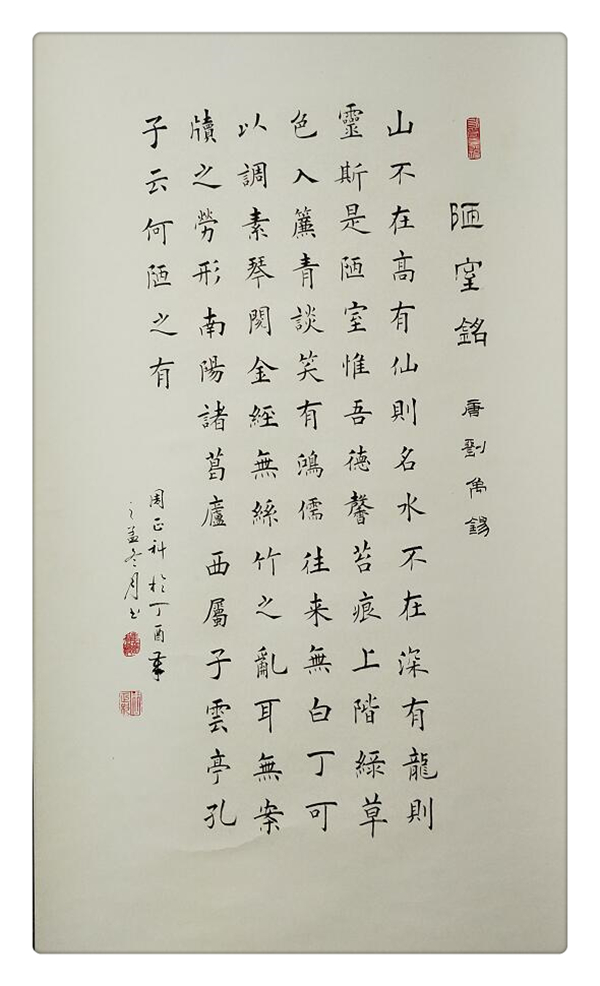 陋室銘 唐劉禹錫
山不在高有仙則名水不在深有龍則
靈斯是陋室惟吾德馨苔痕上階綠草
色入簾青談笑有鴻儒往来無白丁可
以調素琴閱金經無絲竹之亂耳無案
牘之勞形南陽諸葛廬西屬子雲亭孔
子云何陋之有
周正科於丁酉年
之孟冬月书